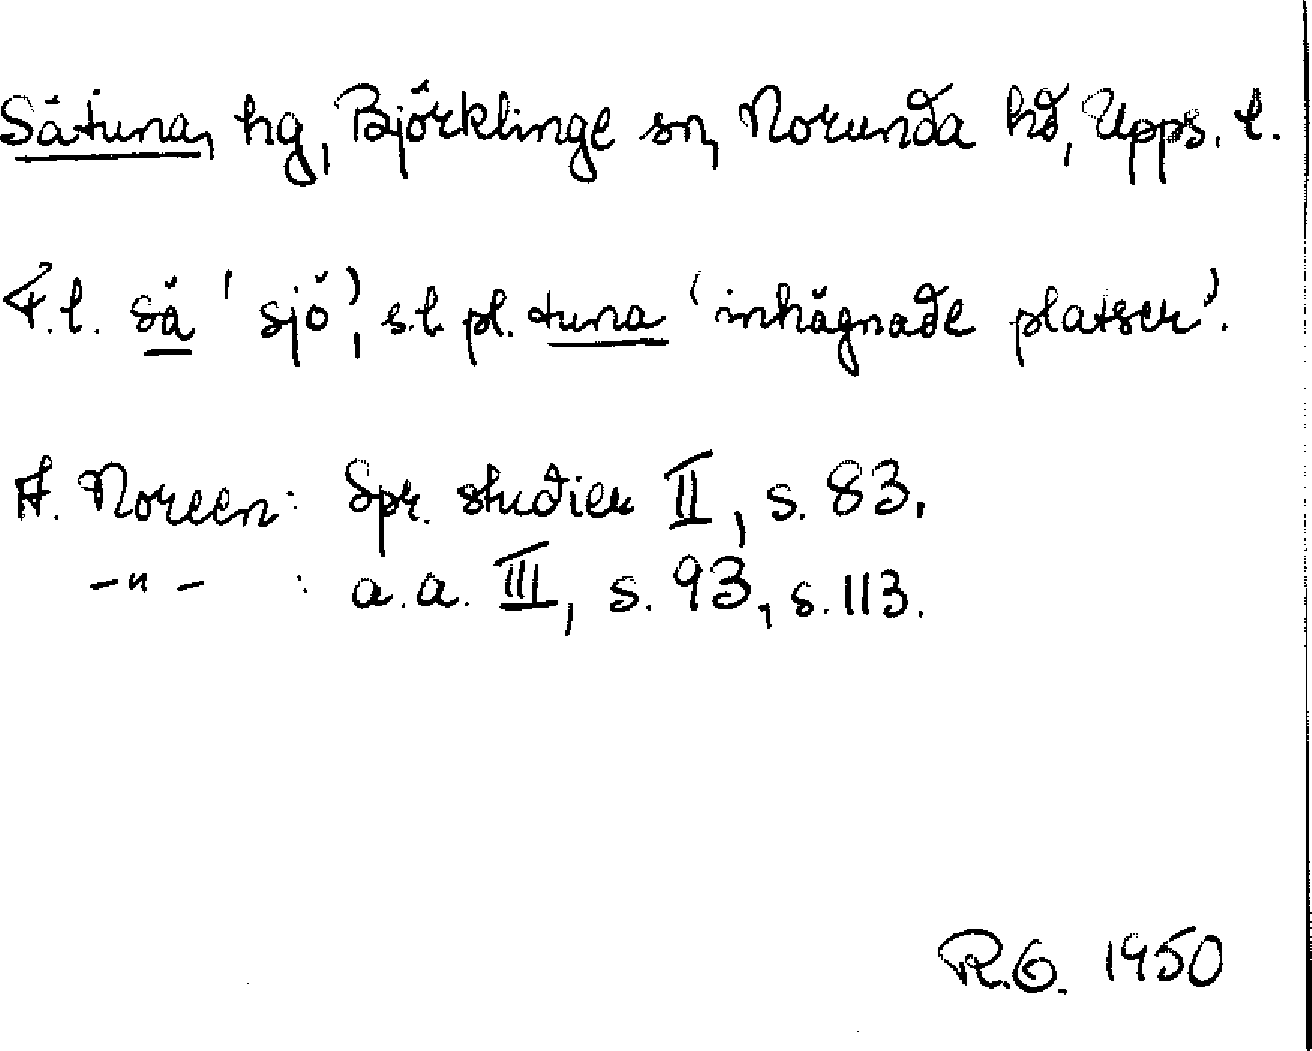 Sätuna, hg, Björklinge sn, Norunda hd, Upps. l.
F.l. sä 'sjö', s.l. pl. tuna 'inhägnade platser'.
A. Noreen: Spr. studier II, s. 83.
-"- : a.a. III, s. 93, s. 113.
R.G. 1950